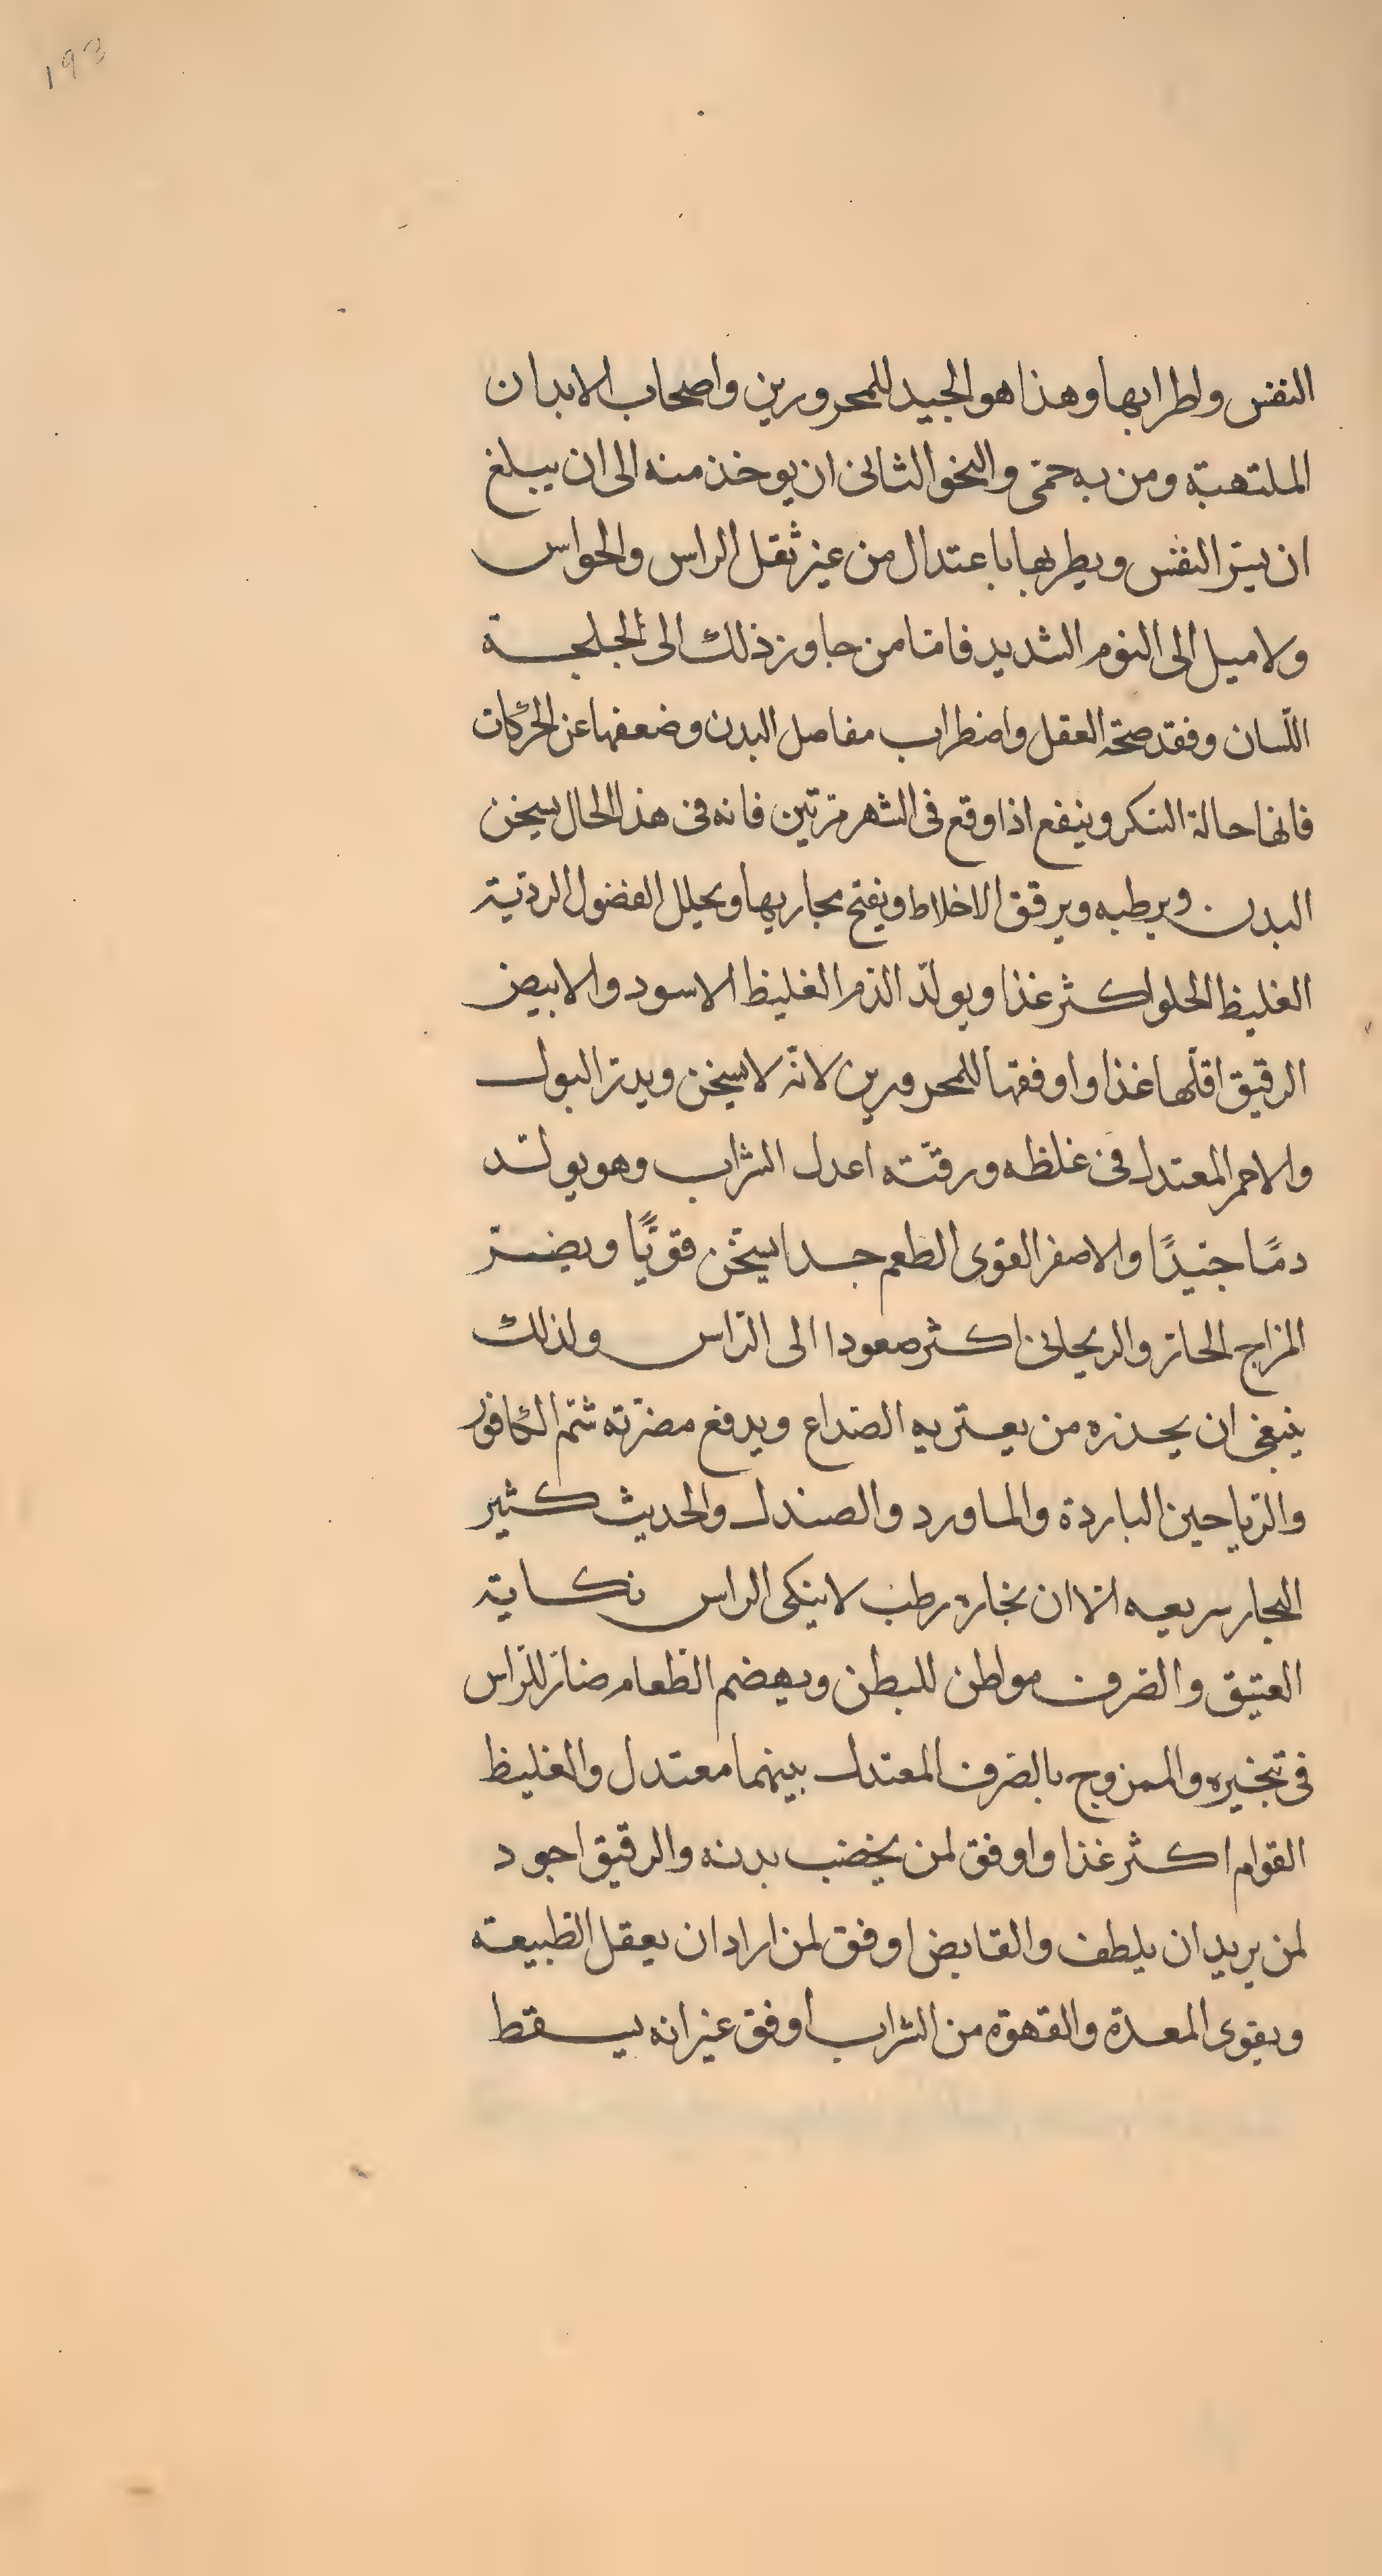 193
النفس واطرابها وهذا هو الجيد للمحرورين واصحاب الابدان
الملتهبة ومن به حمّى والنحو الثانى ان يوخذ منه الى ان يبلغ
ان يسرّ النفس ويطربها باعتدال من غير ثقل الراس والحواس
ولا ميل الى النوم الشديد فامّا من جاوز ذلك الى لجلجة
اللّسان وفقد صحّة العقل واضطراب مفاصل البدن وضعفها عن الحركات
فانها حالة السكر وينفع اذا وقع فى الشهر مرّتين فانه فى هذا الحال يسخن
البدن ويرطبه ويرقق الاخلاط ويفتح مجاريها ويحلل الفضول الرديّة
الغليظ الحلو اكثر غذا ويولّد الدّم الغليظ الاسود والابيض
الرقيق اقلّها غذا واوفقها للمحرورين لانّه لا يسخن ويدرّ البول
والاحمر المعتدل فى غلظه ورقّته اعدل الشراب وهو يولّد
دمًا جيّدًا والاصفر القوى الطعم جدا يسخّن قويًّا ويضرّ
المزاج الحارّ والريحانى اكثر صعودا الى الرّاس ولذلك
ينبغى ان يحذره من يعتريه الصّداع ويدفع مضرّته شمّ الكافور
والرّياحين الباردة والماورد والصندل والحديث كثير
البخار سريعه الّا ان بخاره رطب لا ينكى الراس نكاية
العتيق والصّرف مواطن للبطن ويهضم الطّعام ضارّ للرّاس
فى تبخيره والممزوج بالصّرف المعتدل بينهما معتدل والغليظ
القوام اكثر غذا واوفق لمن يخضب بدنه والرقيق اجود
لمن يريد ان يلطف والقابض اوفق لمن اراد ان يعقل الطّبيعة
ويقوى المعدة والقهوة من الشراب اوفق غير انه يسقط